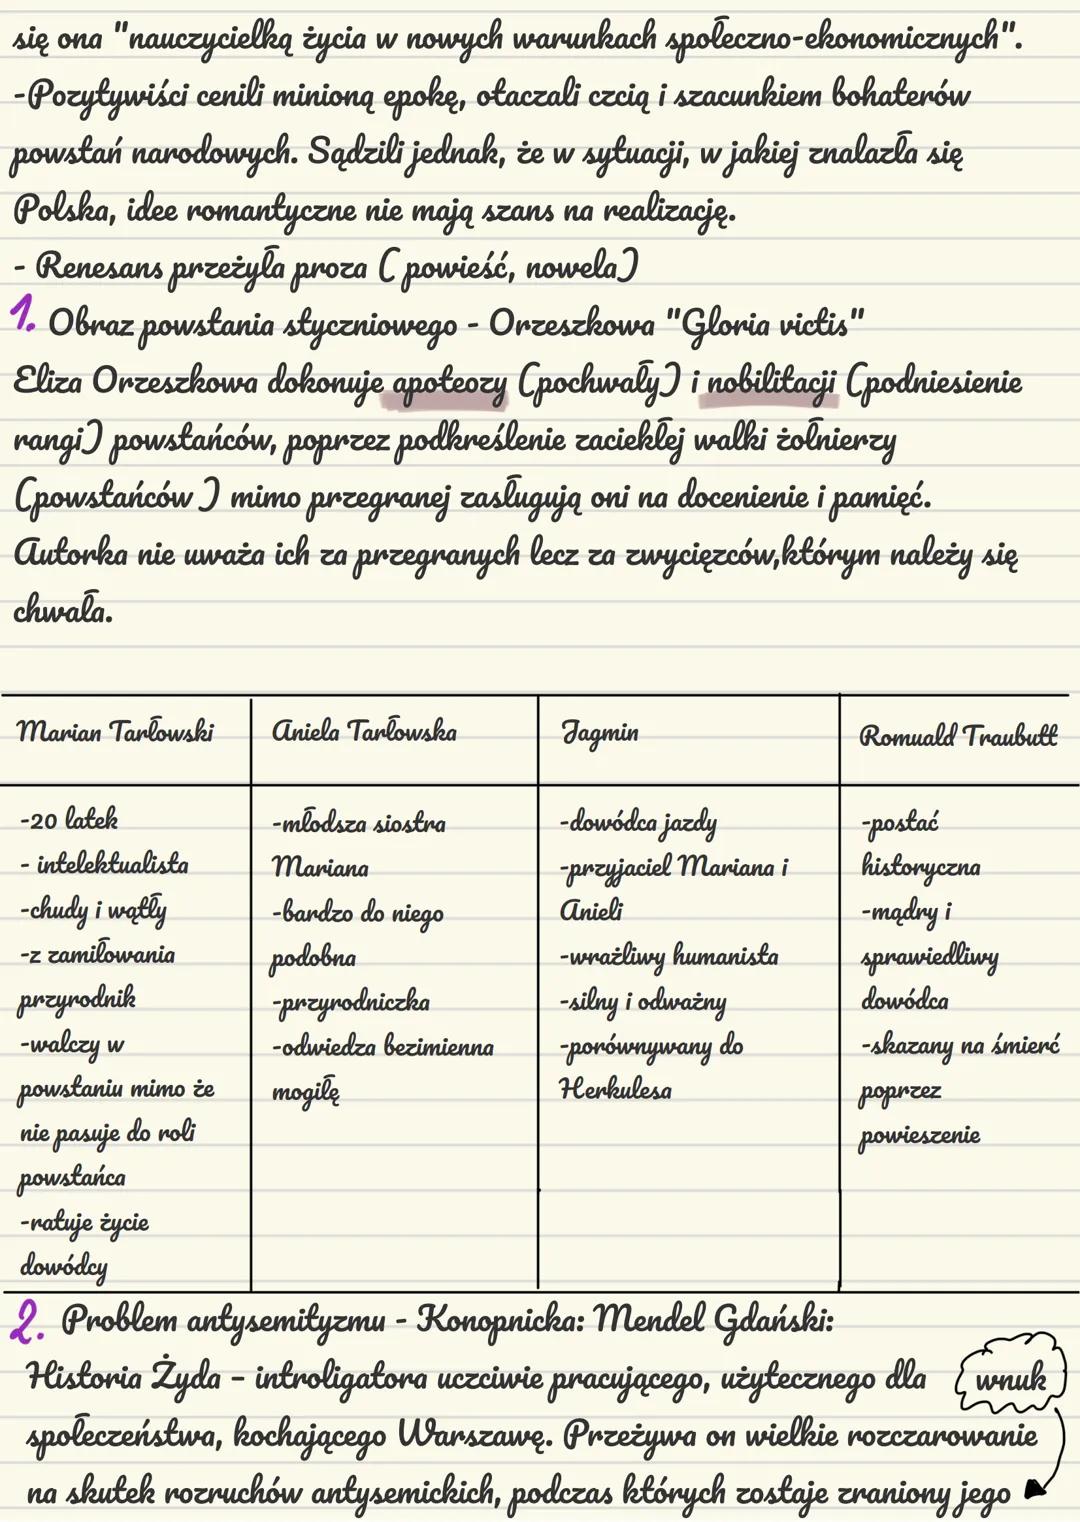 się ona "nauczycielką życia w nowych warunkach społeczno-ekonomicznych".
-Pozytywiści cenili minioną epokę, otaczali czcią i szacunkiem bohaterów
powstań narodowych. Sądzili jednak, że w sytuacji, w jakiej znalazła się
Polska, idee romantyczne nie mają szans na realizację.
- Renesans przeżyła proza ( powieść, nowela)
1. Obraz powstania styczniowego - Orzeszkowa "Gloria victis"
Eliza Orzeszkowa dokonuje apoteozy (pochwały) i nobilitacji (podniesienie
rangi) powstańców, poprzez podkreślenie zaciekłej walki żołnierzy
(powstańców ) mimo przegranej zasługują oni na docenienie i pamięć.
Autorka nie uważa ich za przegranych lecz za zwycięzców,którym należy się
chwała.
Marian Tarłowski
-20 latek
- intelektualista
-chudy i wątły
-z zamiłowania
przyrodnik
-walczy w
powstaniu mimo że
nie pasuje do roli
powstańca
-ratuje życie
dowódcy
Aniela Tarłowska
-młodsza siostra
Mariana
-bardzo do niego
podobna
-przyrodniczka
-odwiedza bezimienna
mogiłę
Jagmin
-dowódca jazdy
-przyjaciel Mariana i
Anieli
-wrażliwy humanista
-silny i odważny
-porównywany do
Herkulesa
Romuald Traubutt
-postać
historyczna
-mądry i
sprawiedliwy
dowódca
-skazany na śmierć
poprzez
powieszenie
2. Problem antysemityzmu - Konopnicka: Mendel Gdański:
Historia Żyda – introligatora uczciwie pracującego, użytecznego dla
społeczeństwa, kochającego Warszawę. Przeżywa on wielkie rozczarowanie
na skutek rozruchów antysemickich, podczas których zostaje zraniony jego
wnuk